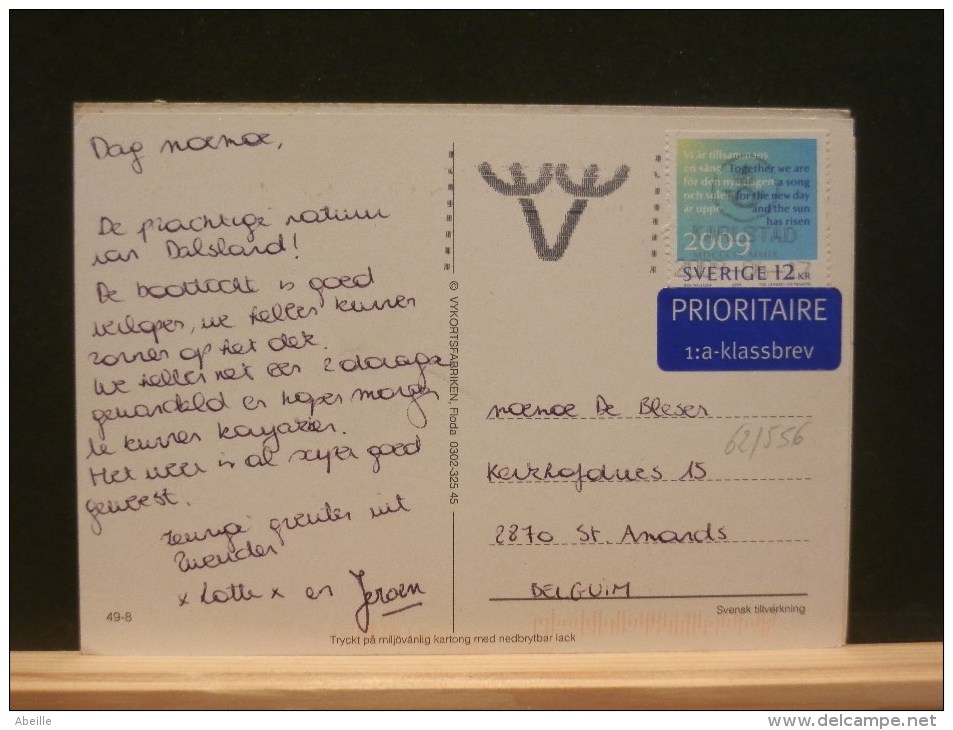 Dag moemoe,
De prachtige natuur
van Dalsland!
De boottocht is goed
verlopen, we hebben kunnen
zonnen op het dek.
We hebben net een 2 daagse
gewandeld en hopen morgen
te kunnen kayakken.
Het weer is al super goed
geweest.
groeten uit
Zweden
x Lotte x en Jeroen
49-8
© VYKORTSFABRIKEN, Floda 0302-325 45
Vi är tillsammans
en sång Together we are
för den nya dagen a song
och solen for the new day
är uppe and the sun
has risen
2009
KARLSTAD
SVERIGE 12 KR
PRIORITAIRE
1:a-klassbrev
moemoe De Bleser
62/556
Kerkhofdries 15
2870 St. Amands
BELGUIM
Svensk tillverkning
Tryckt på miljövänlig kartong med nedbrytbar lack
Abeille
www.delcampe.net